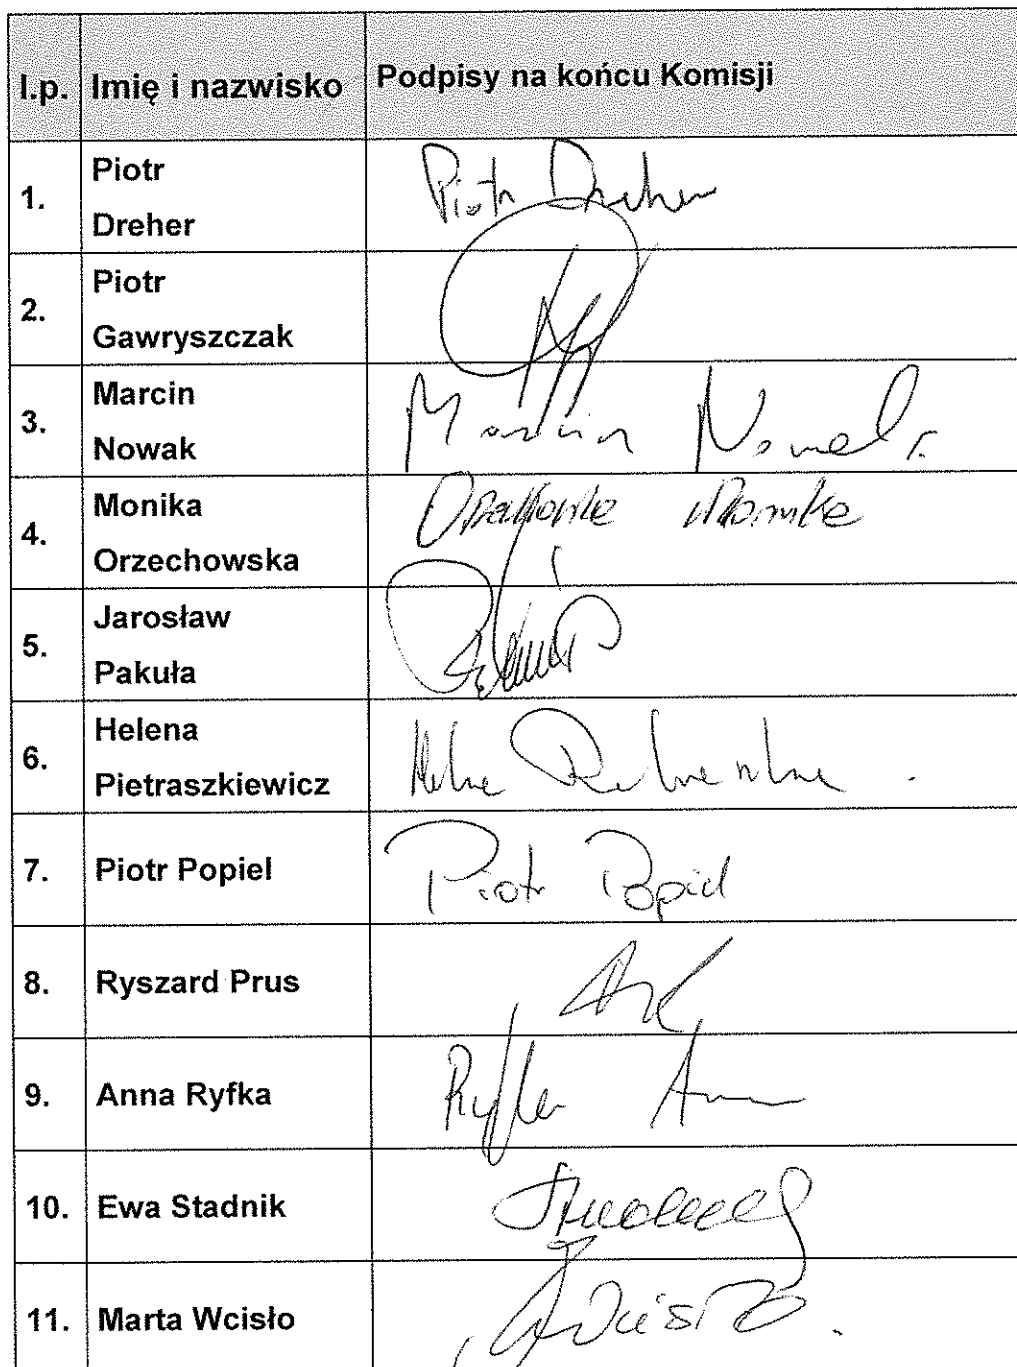 l.p. Imię i nazwisko Podpisy na końcu Komisji
1. Piotr Dreher Piotr Dreher
2. Piotr Gawryszczak
3. Marcin Nowak Marcin Nowak
4. Monika Orzechowska Monika
5. Jarosław Pakuła
6. Helena Pietraszkiewicz
7. Piotr Popiel Piotr Popiel
8. Ryszard Prus
9. Anna Ryfka Ryfka Anna
10. Ewa Stadnik
11. Marta Wcisło Wcisło